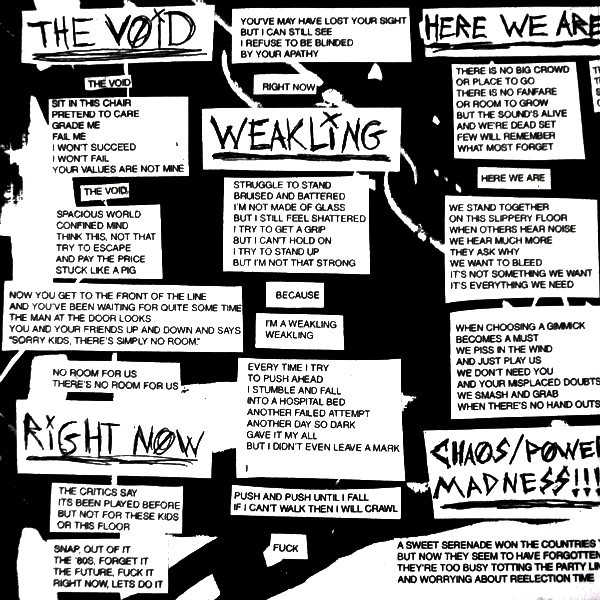 THE VOID
THE VOID
SIT IN THIS CHAIR
PRETEND TO CARE
GRADE ME
FAIL ME
I WON'T SUCCEED
I WON'T FAIL
YOUR VALUES ARE NOT MINE
THE VOID
SPACIOUS WORLD
CONFINED MIND
THINK THIS, NOT THAT
TRY TO ESCAPE
AND PAY THE PRICE
STUCK LIKE A PIG
NOW YOU GET TO THE FRONT OF THE LINE
AND YOU'VE BEEN WAITING FOR QUITE SOME TIME
THE MAN AT THE DOOR LOOKS
YOU AND YOUR FRIENDS UP AND DOWN AND SAYS
"SORRY KIDS, THERE'S SIMPLY NO ROOM."
NO ROOM FOR US
THERE'S NO ROOM FOR US
RIGHT NOW
THE CRITICS SAY
ITS BEEN PLAYED BEFORE
BUT NOT FOR THESE KIDS
OR THIS FLOOR
SNAP, OUT OF IT
THE '80S, FORGET IT
THE FUTURE, FUCK IT
RIGHT NOW, LETS DO IT
YOU'VE MAY HAVE LOST YOUR SIGHT
BUT I CAN STILL SEE
I REFUSE TO BE BLINDED
BY YOUR APATHY
RIGHT NOW
WEAKLING
STRUGGLE TO STAND
BRUISED AND BATTERED
I'M NOT MADE OF GLASS
BUT I STILL FEEL SHATTERED
I TRY TO GET A GRIP
BUT I CAN'T HOLD ON
I TRY TO STAND UP
BUT I'M NOT THAT STRONG
BECAUSE
I'M A WEAKLING
WEAKLING
EVERY TIME I TRY
TO PUSH AHEAD
I STUMBLE AND FALL
INTO A HOSPITAL BED
ANOTHER FAILED ATTEMPT
ANOTHER DAY SO DARK
GAVE IT MY ALL
BUT I DIDN'T EVEN LEAVE A MARK
PUSH AND PUSH UNTIL I FALL
IF I CAN'T WALK THEN I WILL CRAWL
FUCK
HERE WE ARE
THERE IS NO BIG CROWD
OR PLACE TO GO
THERE IS NO FANFARE
OR ROOM TO GROW
BUT THE SOUND'S ALIVE
AND WE'RE DEAD SET
FEW WILL REMEMBER
WHAT MOST FORGET
HERE WE ARE
WE STAND TOGETHER
ON THIS SLIPPERY FLOOR
WHEN OTHERS HEAR NOISE
WE HEAR MUCH MORE
THEY ASK WHY
WE WANT TO BLEED
IT'S NOT SOMETHING WE WANT
IT'S EVERYTHING WE NEED
WHEN CHOOSING A GIMMICK
BECOMES A MUST
WE PISS IN THE WIND
AND JUST PLAY US
WE DON'T NEED YOU
AND YOUR MISPLACED DOUBTS
WE SMASH AND GRAB
WHEN THERE'S NO HAND OUTS
CHAOS/POWER
MADNESS!!!
A SWEET SERENADE WON THE COUNTRIES
BUT NOW THEY SEEM TO HAVE FORGOTTEN
THEY'RE TOO BUSY TOTTING THE PARTY LIN
AND WORRYING ABOUT REELECTION TIME